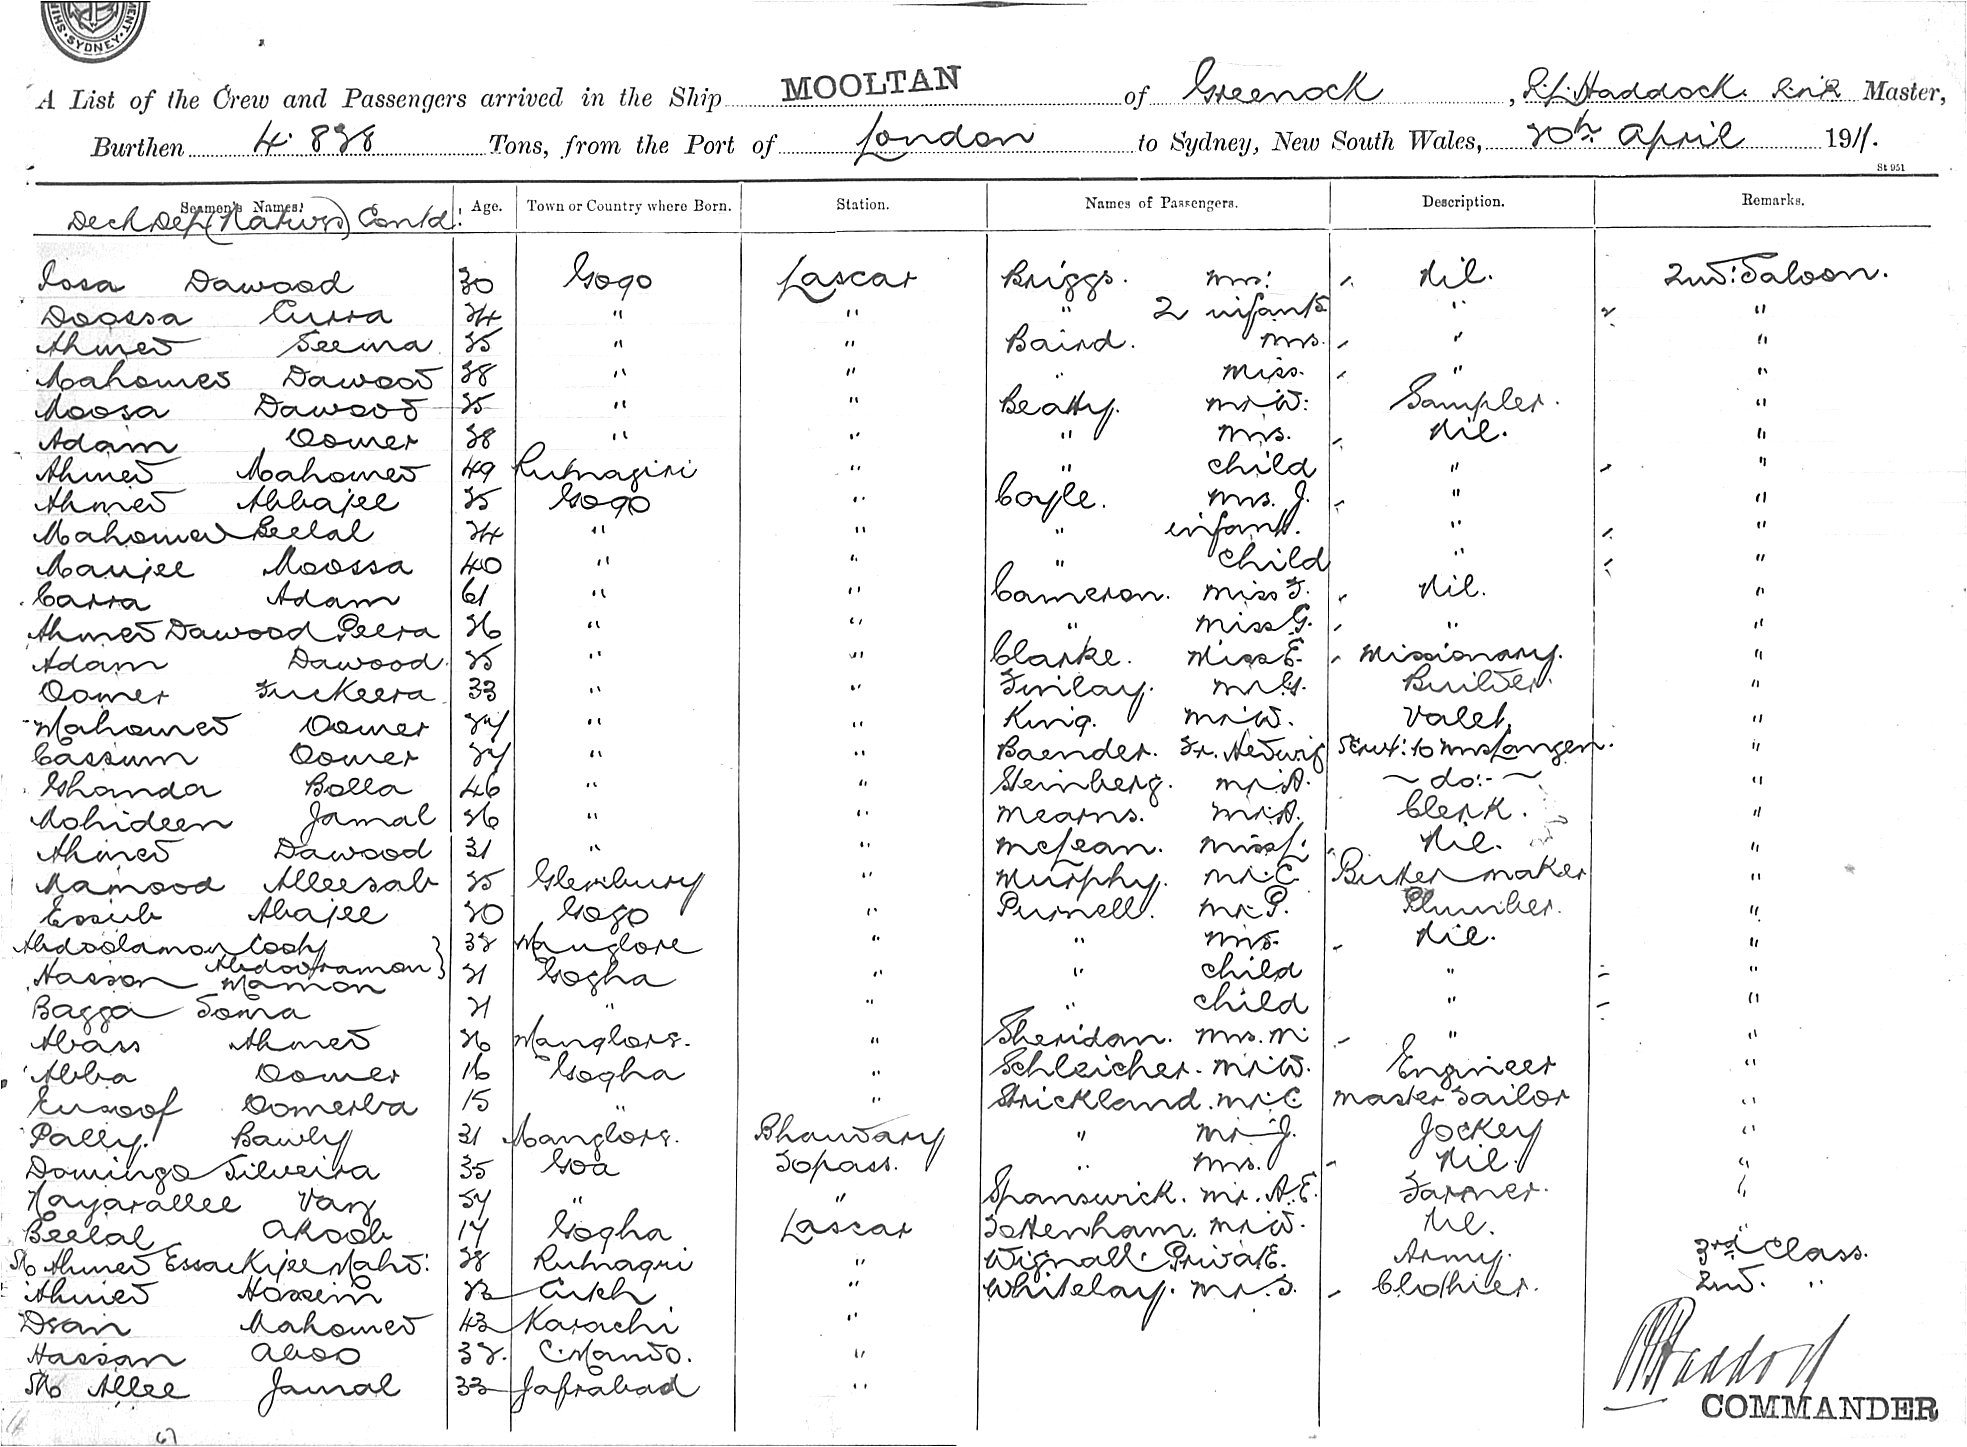 SYDNEY
A List of the Crew and Passengers arrived in the Ship MOOLTAN of Greenock, R.L. Haddock. R.N.R Master,
Burthen 4.828 Tons, from the Port of London to Sydney, New South Wales, 20th April 1911.
St 951
Seamen's Names. Age. Town or Country where Born. Station. Names of Passengers. Description. Remarks.
Deck Dept (Natives) Contd:
Issa Dawood 30 Gogo Lascar Briggs. Mrs: Nil. 2nd: Saloon.
Doossa Curra 24 " " " 2 infants " "
Ahmed Seema 25 " " Baird. Mrs. " "
Mahomed Dawood 28 " " " Miss. " "
Moosa Dawood 25 " " Beatty. Mr W: Sampler. "
Adam Oomer 28 " " " Mrs. Nil. "
Ahmed Mahomed 49 Rutnagiri " " child " "
Ahmed Abbajee 25 Gogo " Coyle. Mrs. J. " "
Mahomed Beelal 24 " " " infant. " "
Maujee Moossa 40 " " " child " "
Carra Adam 61 " " Cameron. Miss F. Nil. "
Ahmed Dawood Peera 26 " " " Miss G. " "
Adam Dawood. 25 " " Clarke. Miss E. Missionary. "
Oomer Fuckeera 33 " " Finlay. Mr G. Builder. "
Mahomed Oomer 24 " " King. Mr W. Valet. "
Cassum Oomer 24 " " Baender. Fr. Hedwig Servt: to Mrs Langen. "
Ghanda Bolla 46 " " Steinberg. Mr A. ~ do:- ~ "
Mohideen Jamal 26 " " Mearns. Mr A. Clerk. "
Ahmed Dawood 31 " " McLean. Miss L. Nil. "
Mamood Alleesab 25 " Murphy. Mr. C. Butter maker "
Essub Abajee 20 Gogo " Purnell. Mr. P. Plumber. "
Abdoolamon Cooty Abdooramon } 32 Manglore " " Mrs. Nil. "
Hasson Mamon 21 Gogha " " child " "
Bagga Soma 21 " " child " "
Abass Ahmed 26 Manglore. " Sheridan. Mrs. M. " "
Abba Oomer 16 Gogha " Schleicher. Mr W. Engineer "
Eusoof Oomerba 15 " " Strickland. Mr. C. Master Tailor "
Pally. Bawly 31 Manglore. Bhandary " Mr J. Jockey "
Domingo Silveira 35 Goa Topass. " Mrs. Nil. "
Nayarallee Vaz 54 " " Spanswick. Mr. A.E. Farmer. "
Beelal Akoob 17 Gogha Lascar Tottenham. Mr W. Nil. "
Sk Ahmed Essackjee Mahd: 28 Rutnagiri " Wignall. Private E. Army. 3rd Class.
Ahmed Hossein 22 Cutch " Whitelay. Mr. S. Clothier. 2nd. "
Dean Mahomed 43 Karachi "
Hassan Aboo 32. C. Mando. "
Sk Allee Jamal 33 Jafrabad "
R L Haddock
COMMANDER